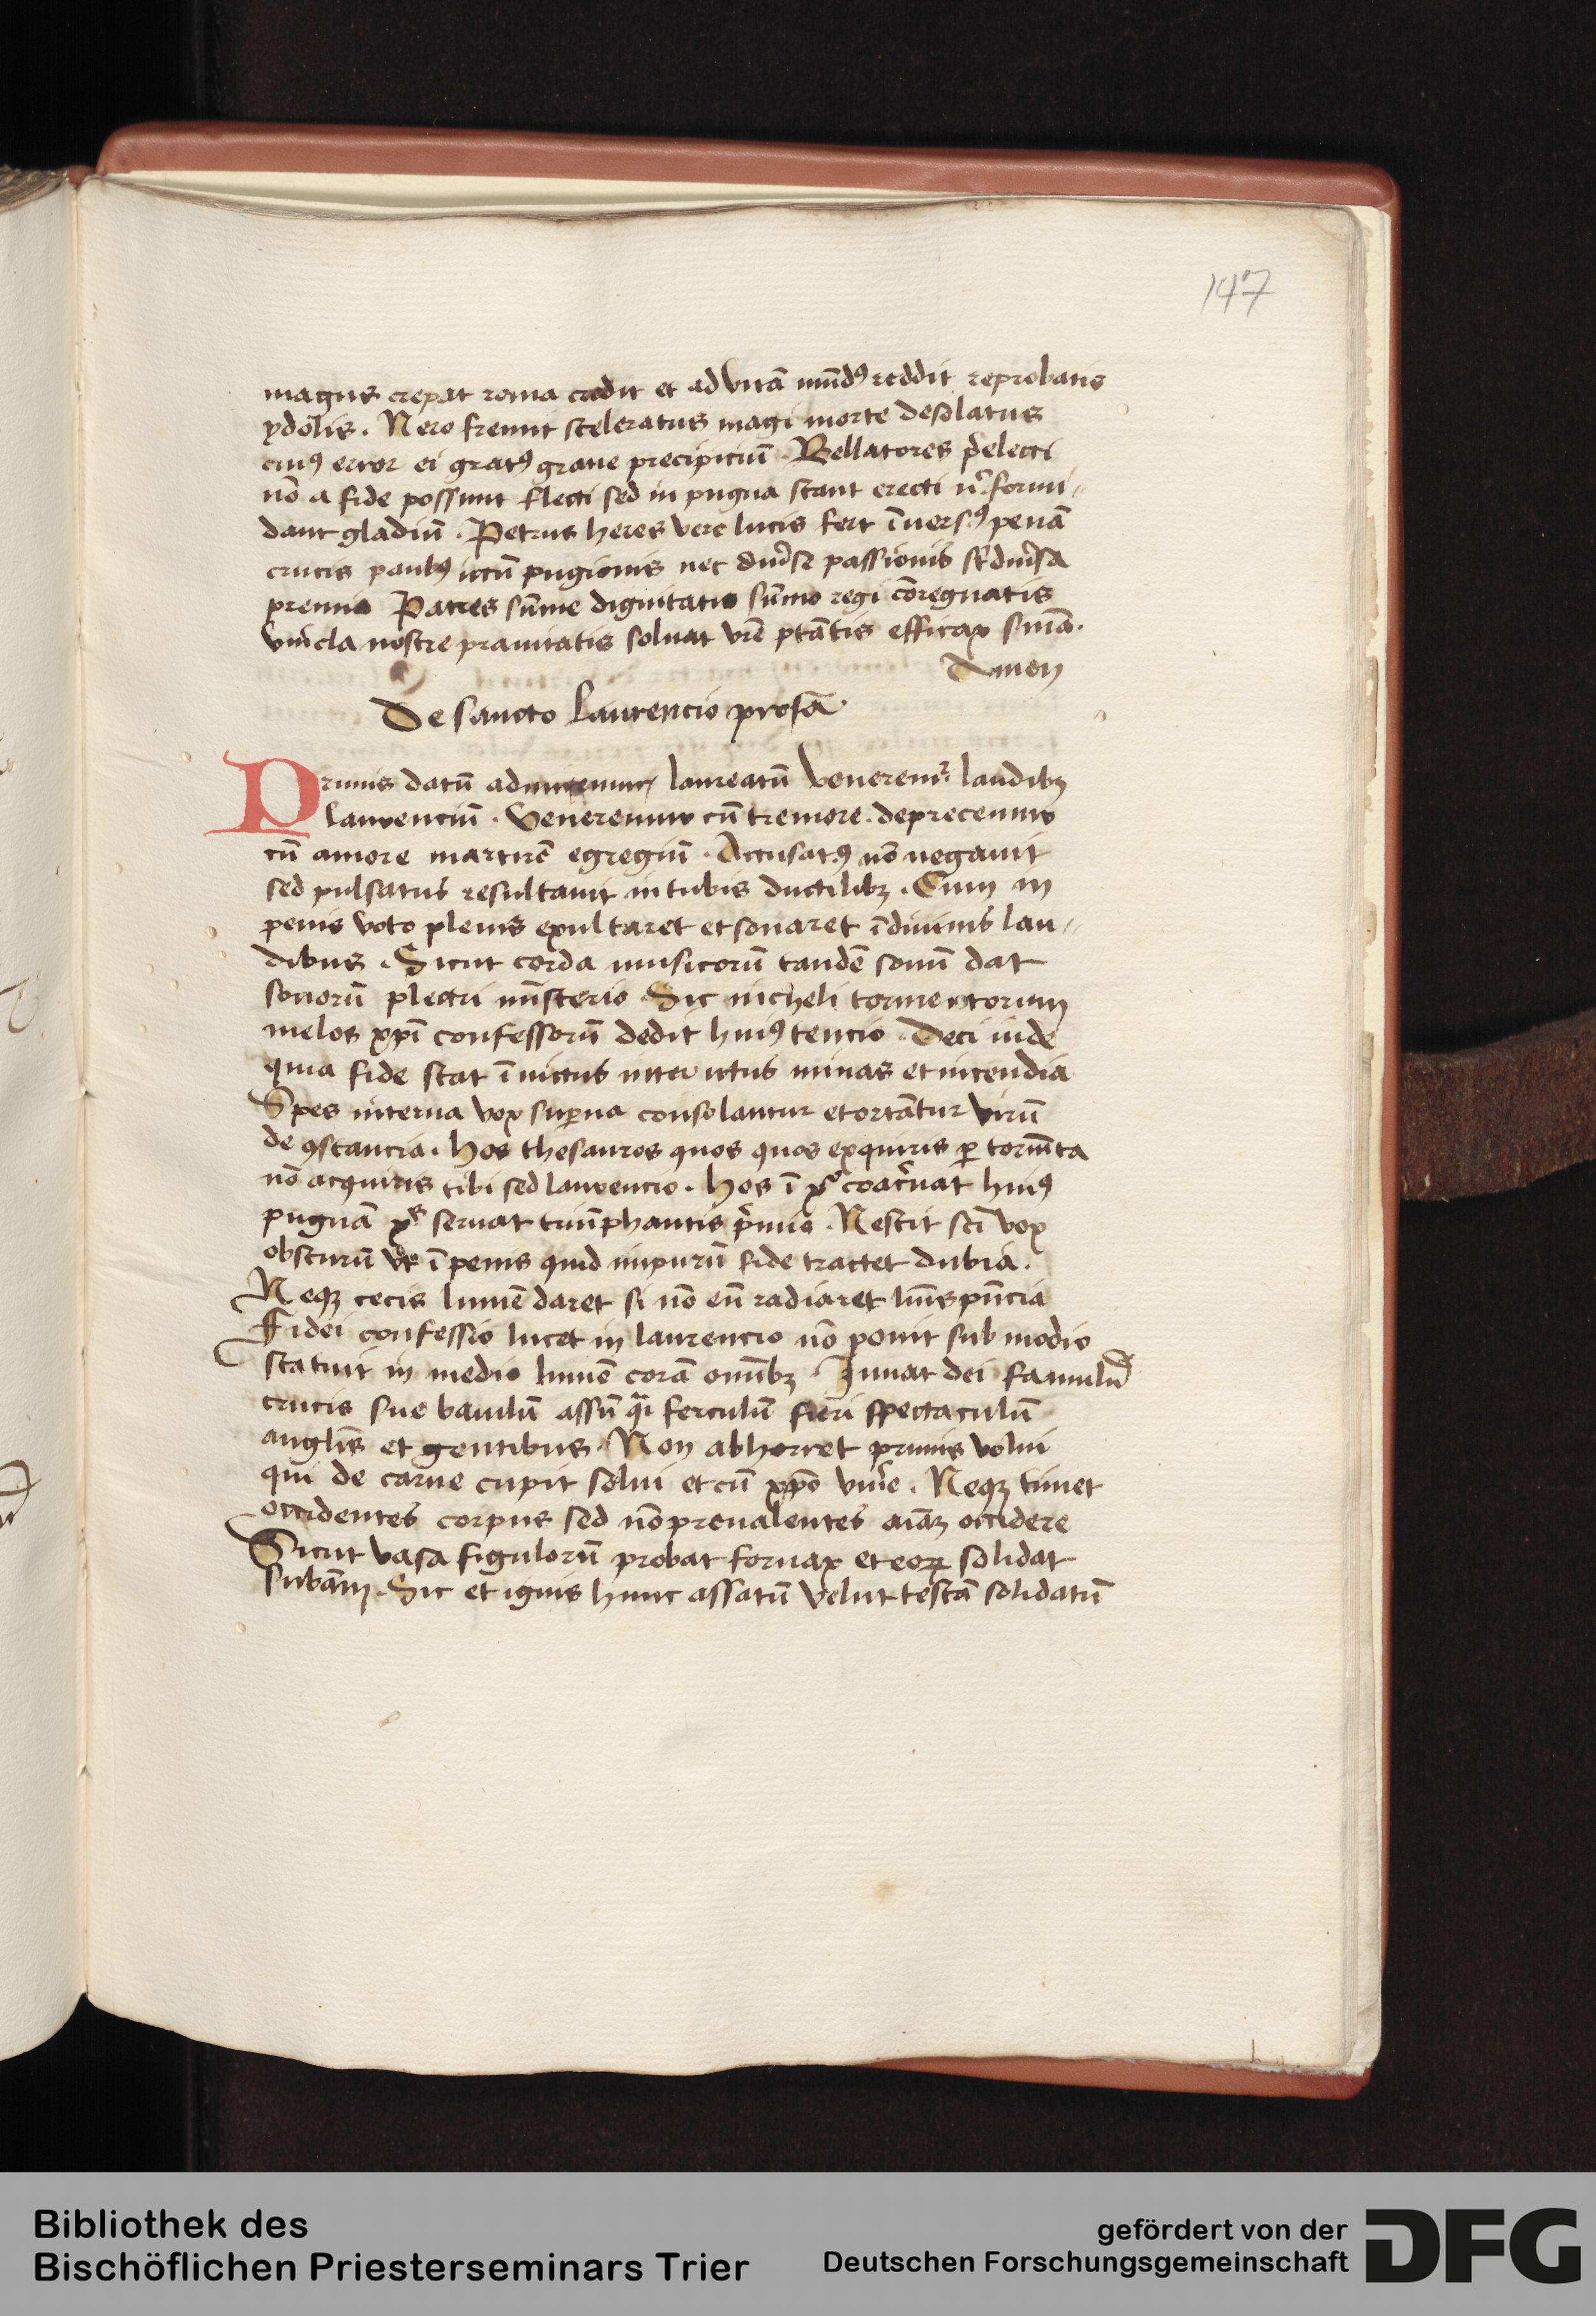 147
magus crepat roma credit et ad vitā mūdꝯ reddit reprobatis
ydolis . Nero fremit sceleratus magi morte desolatus
cuiꝯ error ei gratꝯ graue precipiciū . Bellatores p̄electi
nō a fide possunt flecti sed in pugna stant erecti n̄ formi〃
dant gladiū . Petrus heres vere lucis fert īuersꝯ penā
crucis paulꝯ ictū pugionis nec diu̾se passionis st̄ diu̾sa
premia Patres sūme dignitatis sūmo regi cōregnatis
vincla nostre prauitatis soluat vr̄e ptātis efficax sniā .
Amen
De sancto Laurencio prosa
Prunis datū admiremur laureatū veneremr̄ laudibꝫ
laurenciū . Veneremur cū tremore . deprecemur
cū amore martirē egregiū . Accusatꝯ nō negauit
sed pulsatus resultauit in tubis ductilibꝫ . Cum in
penis voto plenis exultaret et sonaret ī diuinis lau〃
dibus . Sicut corda musicorū tandē sonū dat
sonorū plectri mīsterio . Sic in cheli tormentorum
melos xpī confessorū dedit huiꝯ tencio . Deci vide
quia fide stat īuictus inter ictus minas et incendia
Spes interna vox suꝑna consolantur et ortātur virū
de ꝯstancia . Hos thesauros quos quos exquiris ꝑ tormēta
nō acquiris tibi sed laurencio . Hos ī xº coac̄uat huiꝯ
pugnā xˢ seruat triūphantis p̄mio . Nescit sc̄i vox
obscurū vt ī penis quid impurū fide tractet dubia .
Neqꝫ cecis lumē daret si nō eū radiaret lūīs pn̄cia
Fidei confessio lucet in laurencio nō ponit sub modio
statuit in medio lumē corā omībꝫ . Iuuat dei famulū
crucis sue baiulū assū q̄i ferculū fieri spectaculū
anglīs et gentibus . Non abhorret prunis volui
qui de carne cupit solui et cū xpō viu̾e . Neqꝫ timet
occidentes corpus sed nō preualentes aīaꝫ occidere
Sicut vasa figulorū probat fornax et eoꝝ solidat
subām . Sic et ignis hunc assatū velut testā solidatū
Bibliothek des
Bischöflichen Priesterseminars Trier
gefördert von der
Deutschen Forschungsgemeinschaft
DFG